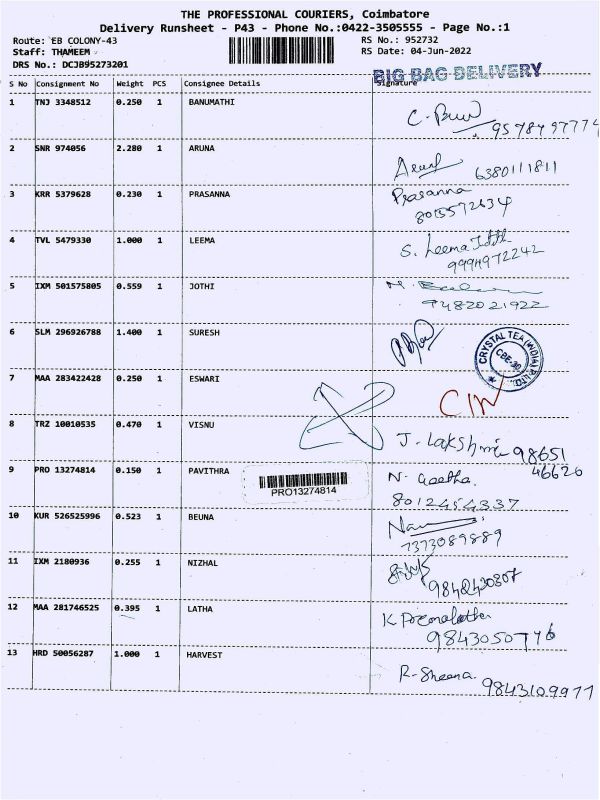 THE PROFESSIONAL COURIERS, Coimbatore
Delivery Runsheet - P43 - Phone No.:0422-3505555 - Page No.:1
Route: EB COLONY-43 RS No.: 952732
Staff: THAMEEM RS Date: 04-Jun-2022
DRS No.: DCJB95273201
BIG BAG DELIVERY
S No Consignment No Weight PCS Consignee Details Signature
1 TNJ 3348512 0.250 1 BANUMATHI
C.
2 SNR 974056 2.280 1 ARUNA
6380111811
3 KRR 5379628 0.230 1 PRASANNA Prasanna
8015572634
4 TVL 5479330 1.000 1 LEEMA S. Leema
9994972242
5 IXM 501575805 0.559 1 JOTHI
9482021922
6 SLM 296926788 1.400 1 SURESH
CRYSTAL TEA (INDIA) P. LTD.
CBE-30
7 MAA 283422428 0.250 1 ESWARI
8 TRZ 10010535 0.470 1 VISNU J. Lakshmi 98651
46620
9 PRO 13274814 0.150 1 PAVITHRA N. Geetha
PRO13274814
8012454337
10 KUR 526525996 0.523 1 BEUNA
7373089889
11 IXM 2180936 0.255 1 NIZHAL
12 MAA 281746525 0.395 1 LATHA K Premalatha
9843050776
13 HRD 50056287 1.000 1 HARVEST R. Sheena
9843109977